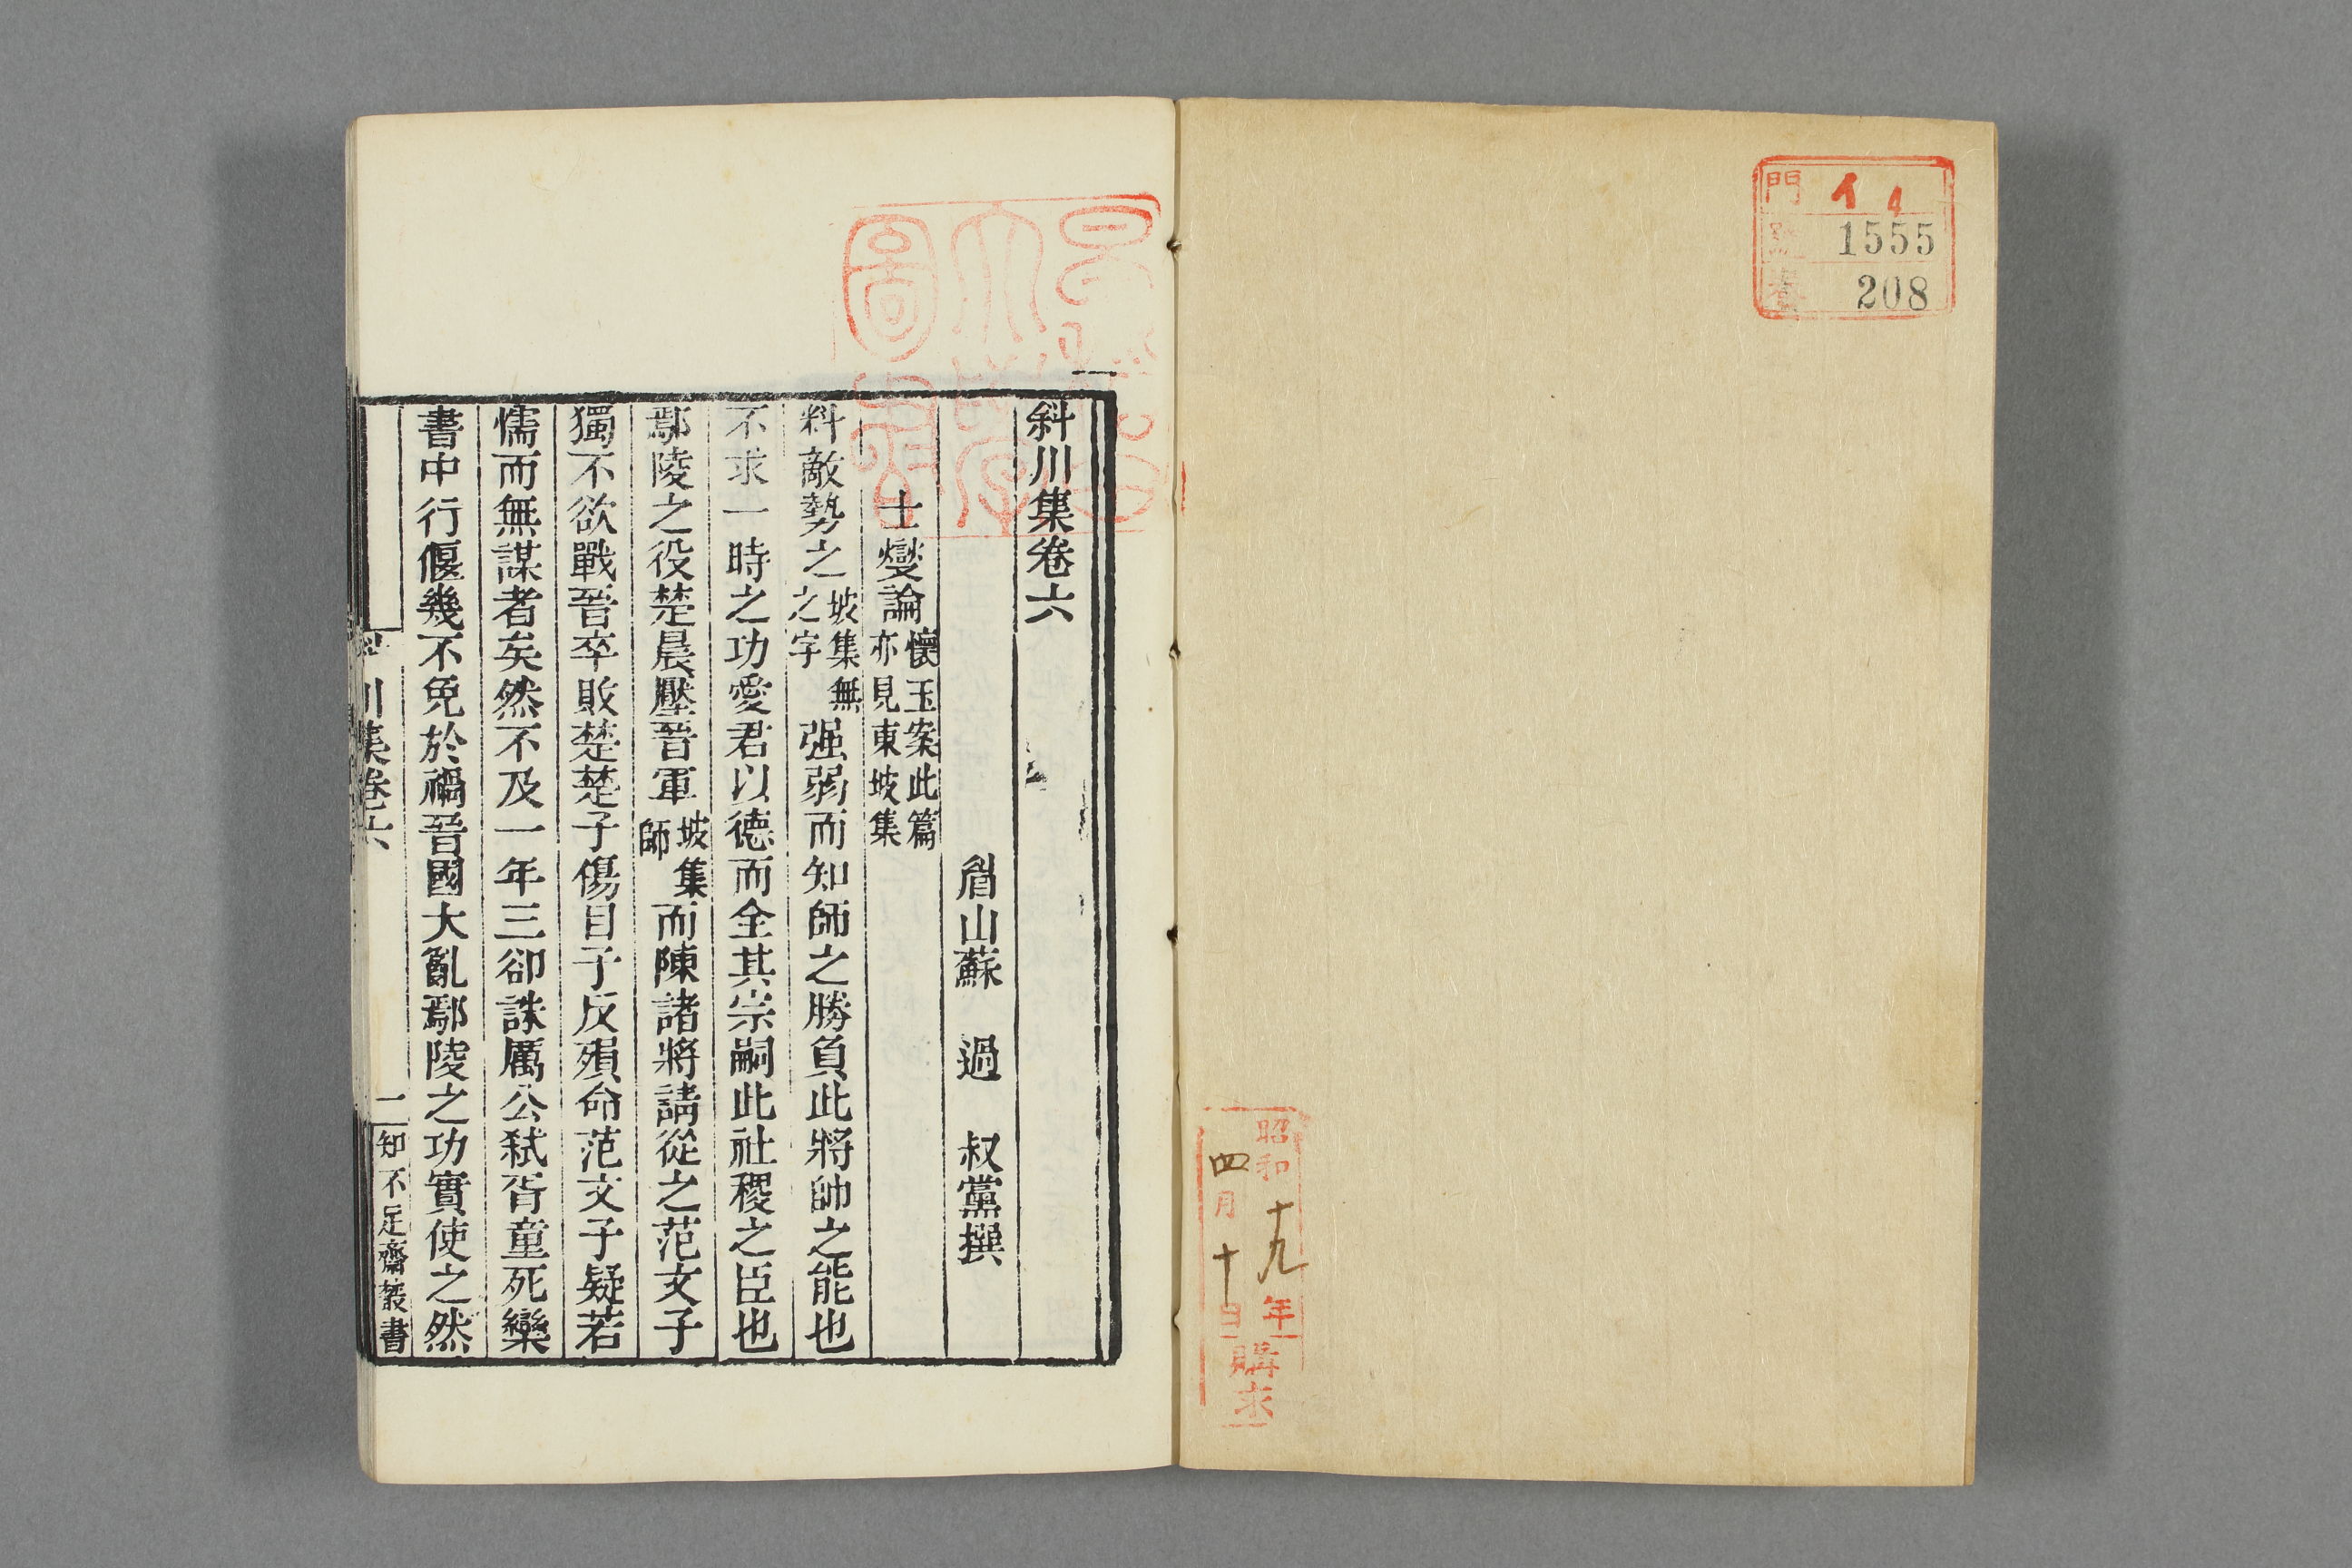 門 イ 4
號 1555
卷 208
昭和十九年
四月十日
購求
斜川集卷六
眉山蘇 過 叔黨撰
士燮論懷玉案此篇亦見東坡集
料敵勢之坡集無之字强弱而知師之勝負此將帥之能也
不求一時之功愛君以德而全其宗嗣此社稷之臣也
鄢陵之役楚晨壓晉軍坡集師而陳諸將請從之范文子
獨不欲戰晉卒敗楚楚子傷目子反殞命范文子疑若
懦而無謀者矣然不及一年三卻誅厲公弑胥童死欒
書中行偃幾不免於禍晉國大亂鄢陵之功實使之然
川集卷六
一
知不足齋叢書